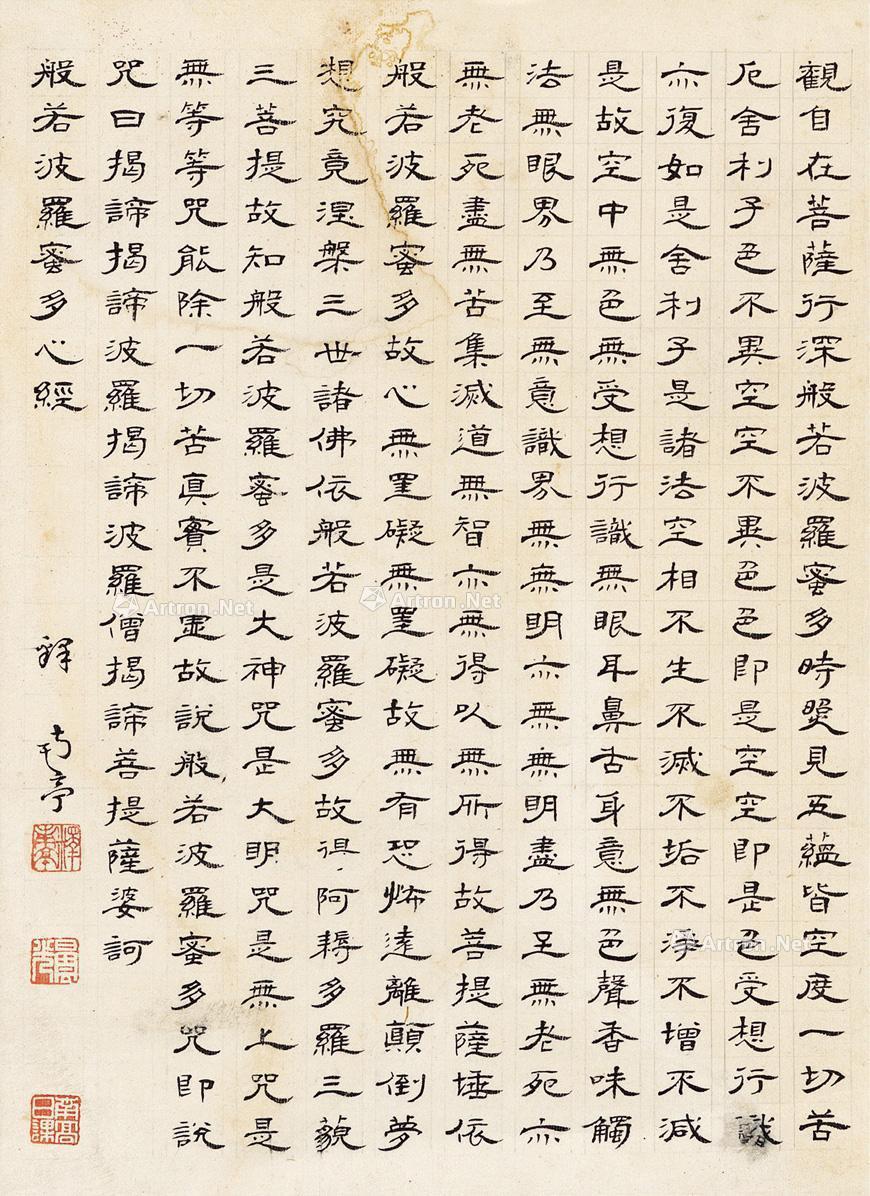 觀自在菩薩行深般若波羅蜜多時照見五蘊皆空度一切苦
厄舍利子色不異空空不異色色即是空空即是色受想行識
亦復如是舍利子是諸法空相不生不滅不垢不淨不增不減
是故空中無色無受想行識無眼耳鼻舌身意無色聲香味觸
法無眼界乃至無意識界無無明亦無無明盡乃至無老死亦
無老死盡無苦集滅道無智亦無得以無所得故菩提薩埵依
般若波羅蜜多故心無罣礙無罣礙故無有恐怖遠離顛倒夢
想究竟涅槃三世諸佛依般若波羅蜜多故得阿耨多羅三藐
三菩提故知般若波羅蜜多是大神咒是大明咒是無上咒是
無等等咒能除一切苦真實不虛故說般若波羅蜜多咒即說
咒曰揭諦揭諦波羅揭諦波羅僧揭諦菩提薩婆訶
般若波羅蜜多心經
釋南亭
釋南亭
Artron.Net
Artron.Net
Artron.Net